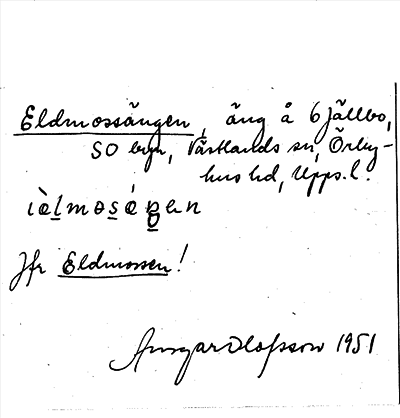 Eldmossängen, äng å Gjällbo,
SO byn, Västlands sn, Örby-
hus hd, Upps. l.
ièlmoséŋen
Jfr Eldmossen!
Ansgar Olofsson 1951